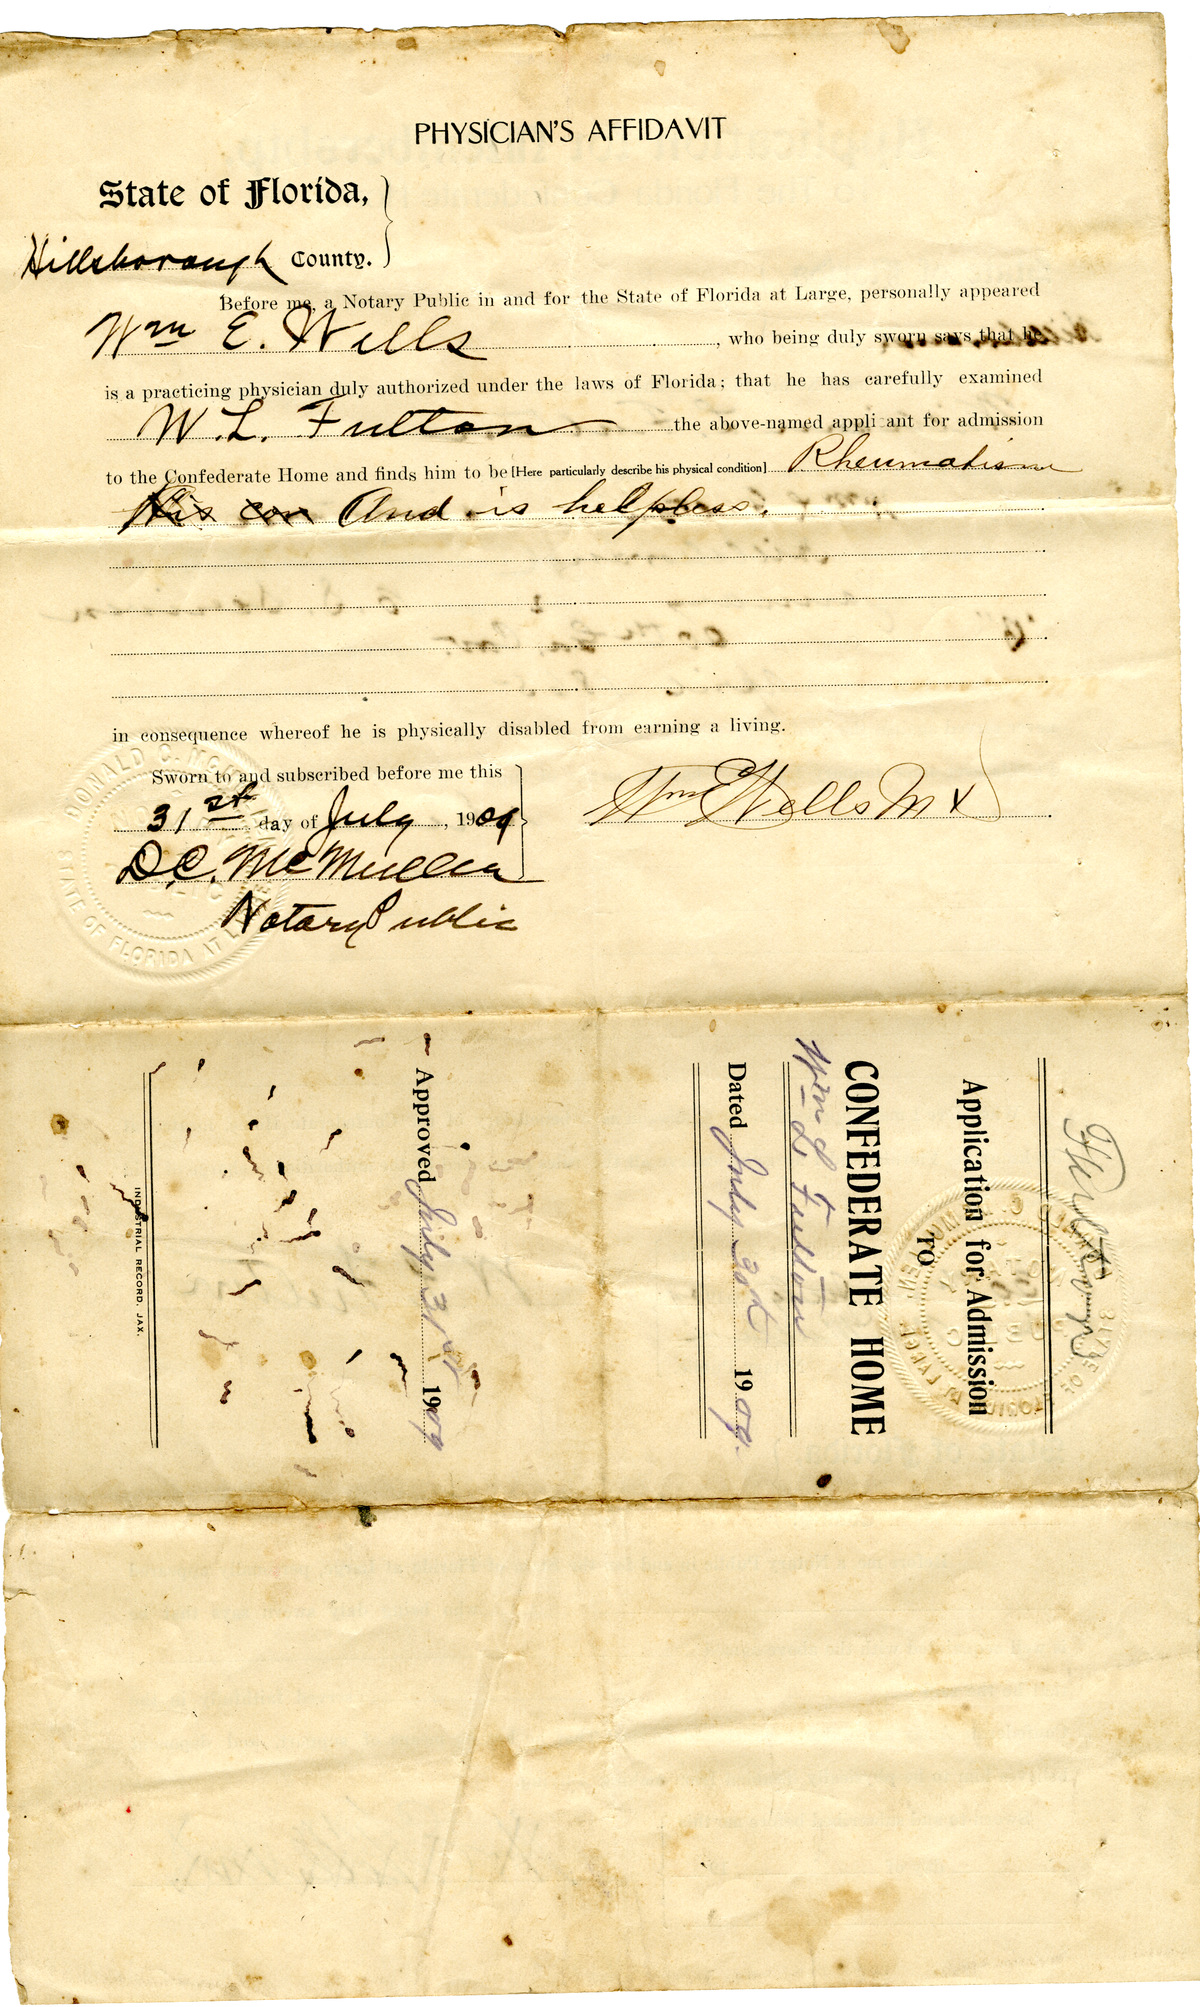 PHYSICIAN'S AFFIDAVIT
State of Florida,
Hillsborough County.
Before me, a Notary Public in and for the State of Florida at Large, personally appeared
Wm E. Wells, who being duly sworn says that he
is a practicing physician duly authorized under the laws of Florida; that he has carefully examined
W. L. Fulton the above-named appli ant for admission
to the Confederate Home and finds him to be [Here particularly describe his physical condition] Rheumatism
His con And is helpless.
in consequence whereof he is physically disabled from earning a living.
Sworn to and subscribed before me this
31st day of July, 1909
Wm E Wells M
D.C. McMullen
Notary Public
Application for Admission
TO
CONFEDERATE HOME
Wm L Fulton
Dated July 31st 1909.
Approved July 31st 1909
INDUSTRIAL RECORD, JAX.